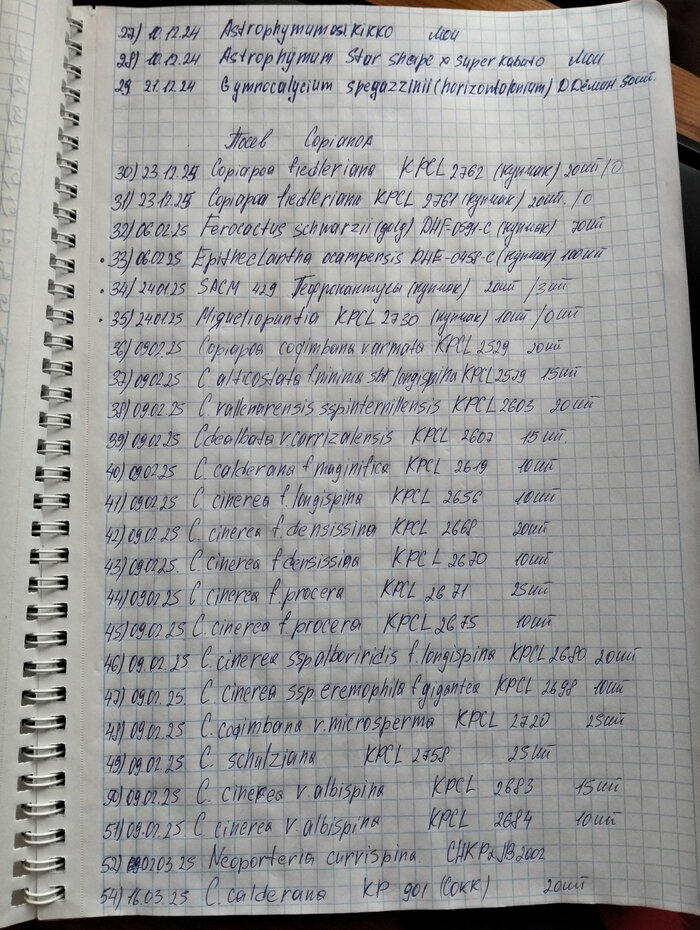 27) 10.12.24 Astrophymum kikko мои
28) 10.12.24 Astrophymum Star shape x super kabuto Мои
29 21.12.24 Gymnocalycium spegazzinii (horizontolonium) Д.Дёмин 30шт.
Посев Copiapoa
30) 23.12.25 Copiapoa fiedleriana KPCL 2762 (купчак) 20шт/0
31) 23.12.25 Copiapoa fiedleriana KPCL 2761 (купчак) 20шт./0
32) 06.02.25 Ferocactus schwarzii (golg) DHF-0591-C (купчак) 70шт
33) 06.02.25 Epithelantha ocampensis DHF-0458-C (купчак) 100шт
34) 24.01.25 SACM 429 Тефрокактусы (купчак) 20шт /3шт
35) 24.01.25 Migueliopuntia KPCL 2730 (купчак) 10шт/0шт
36) 09.02.25 Copiapoa coqimbana v armata KPCL 2529 20шт
37) 09.02.25 C alticostata f.minima sbf longispina KPCL 2579 15шт
38) 09.02.25 C. vallenarensis ssp internillensis KPCL 2603 20шт
39) 09.02.25 C dealbata v carrizalensis KPCL 2607 15шт.
40) 09.02.25 C. calderana f maginifica KPCL 2619 10шт
41) 09.02.25 C cinerea f. longispina KPCL 2656 10шт
42) 09.02.25 C. cinerea f. densissina KPCL 2668 20шт
43) 09.02.25. C. cinerea f densissina KPCL 2670 10шт
44) 09.02.25 C. cinerea f. procera KPCL 2671 25шт
45) 09.02.25 C. cinerea f. procera KPCL 2675 10шт
46) 09.02.25 C. cinerea ssp alboviridis f. longispina KPCL 2680 20шт
47) 09.02.25. C. cinerea ssp. eremophila f gigantea KPCL 2698 10шт
48) 09.02.25 C. coqimbana v. microsperma KPCL 2720 25шт
49) 09.02.25 C. schulziana KPCL 2758 25шт
50) 09.02.25 C. cinerea v albispina KPCL 2683 15шт
51) 09.02.25 C cinerea v. albispina KPCL 2684 10шт
52) 02.03.25 Neoporteria curvispina
54) 16.03.25 C. calderana KP 901 (Сокк) 20шт